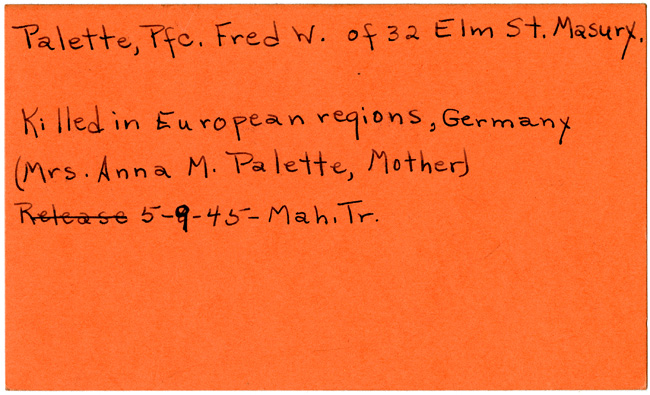 Palette, Pfc. Fred W. of 32 Elm St. Masury.
Killed in European regions, Germany
(Mrs. Anna M. Palette, Mother)
Release 5-9-45- Mah. Tr.